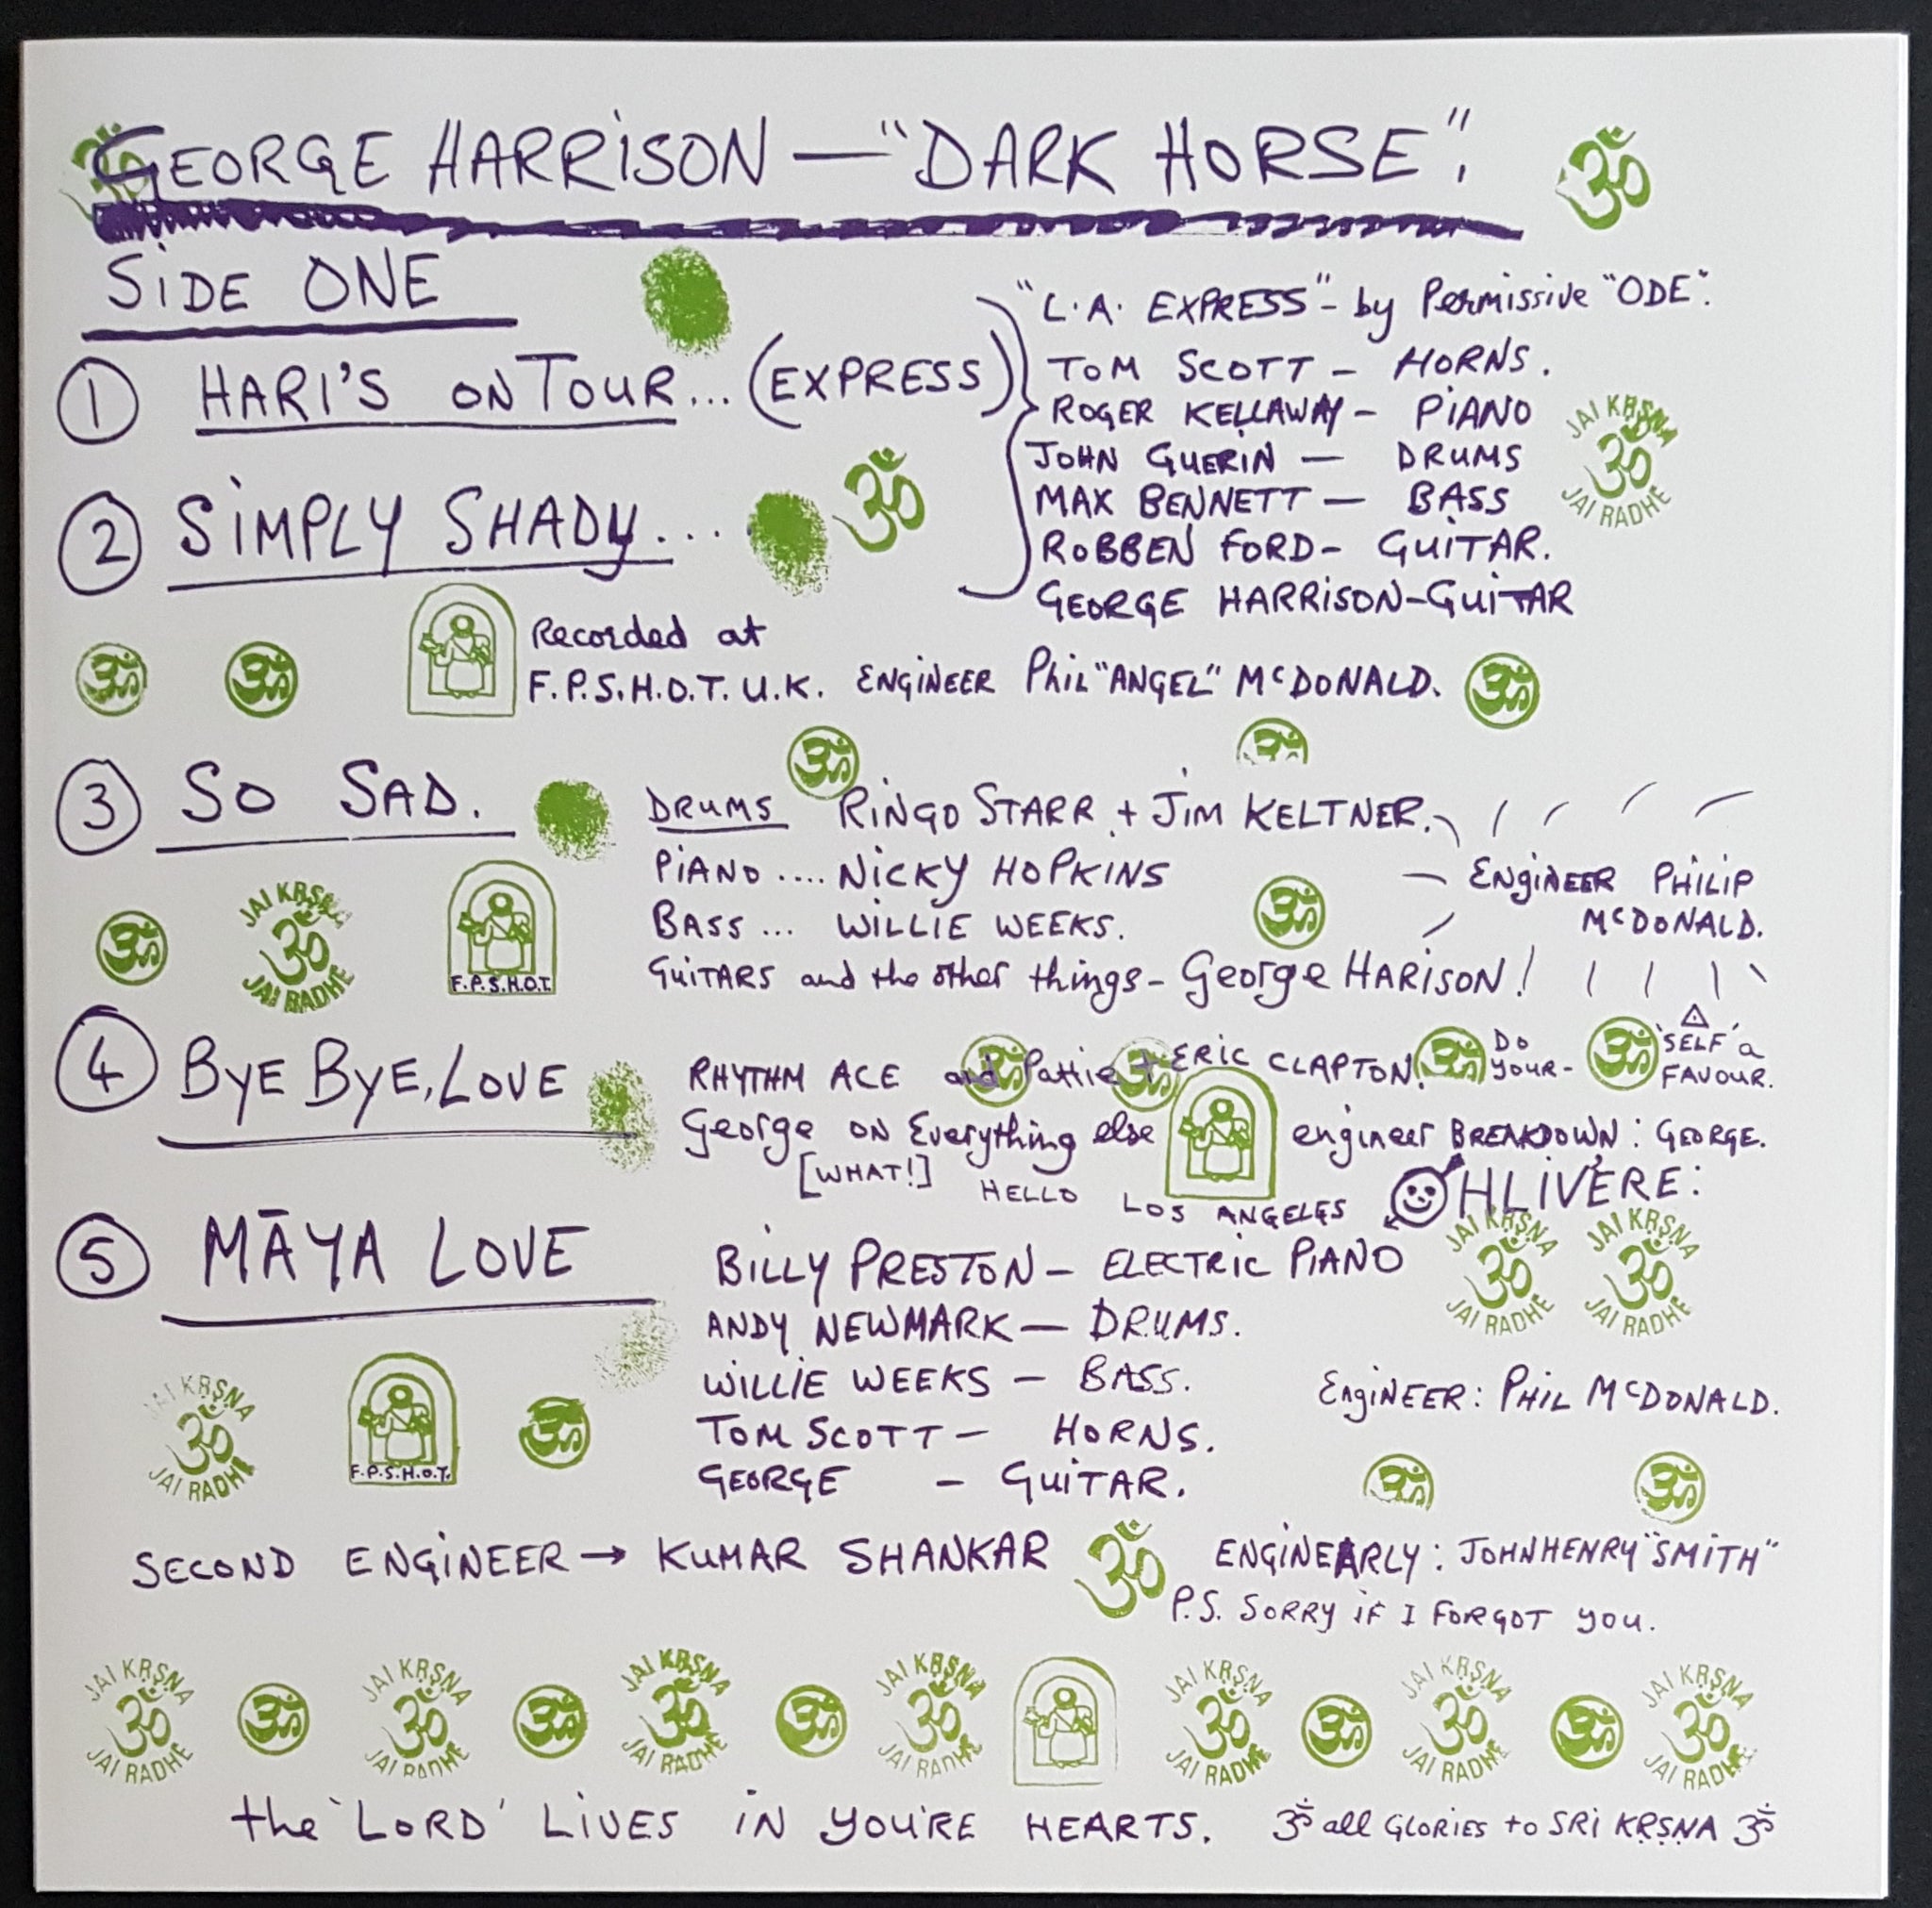 GEORGE HARRISON — "DARK HORSE".
SIDE ONE
① HARI'S ON TOUR... (EXPRESS)
"L.A. EXPRESS" - by Permissive "ODE".
TOM SCOTT - HORNS.
ROGER KELLAWAY - PIANO
JOHN GUERIN — DRUMS
MAX BENNETT — BASS
ROBBEN FORD - GUITAR.
GEORGE HARRISON - GUITAR
JAI KRSNA
ॐ
JAI RADHE
② SIMPLY SHADY...
Recorded at
F.P.S.H.O.T. U.K. ENGINEER Phil "ANGEL" McDONALD.
③ SO SAD.
DRUMS RINGO STARR + JIM KELTNER.
PIANO .... NICKY HOPKINS
BASS ... WILLIE WEEKS.
GUITARS and the other things - George HARISON!
ENGINEER PHILIP
McDONALD.
JAI KRSNA
ॐ
JAI RADHE
F.P.S.H.O.T.
④ BYE BYE, LOVE
RHYTHM ACE and Pattie + ERIC CLAPTON.
DO
YOUR-
'SELF' a
FAVOUR.
George ON Everything else
[WHAT!]
engineer BREAKDOWN: GEORGE.
HELLO LOS ANGELES
OHLIVERE:
⑤ MĀYA LOVE
BILLY PRESTON - ELECTRIC PIANO
ANDY NEWMARK — DRUMS.
WILLIE WEEKS - BASS.
TOM SCOTT - HORNS.
GEORGE - GUITAR.
JAI KRSNA JAI KRSNA
ॐ ॐ
JAI RADHE JAI RADHE
ENGINEER: PHIL McDONALD.
JAI KRSNA
ॐ
JAI RADHE
F.P.S.H.O.T.
SECOND ENGINEER → KUMAR SHANKAR ॐ ENGINEARLY: JOHNHENRY "SMITH"
P.S. SORRY IF I FORGOT YOU.
JAI KRSNA JAI KRSNA JAI KRSNA JAI KRSNA JAI KRSNA JAI KRSNA JAI KRSNA
ॐ ॐ ॐ ॐ ॐ ॐ ॐ ॐ ॐ ॐ ॐ ॐ
JAI RADHE JAI RADHE JAI RADHE JAI RADHE JAI RADHE JAI RADHE JAI RADHE
the 'LORD' LIVES IN YOU'RE HEARTS. ॐ all GLORIES to SRI KRSNA ॐ